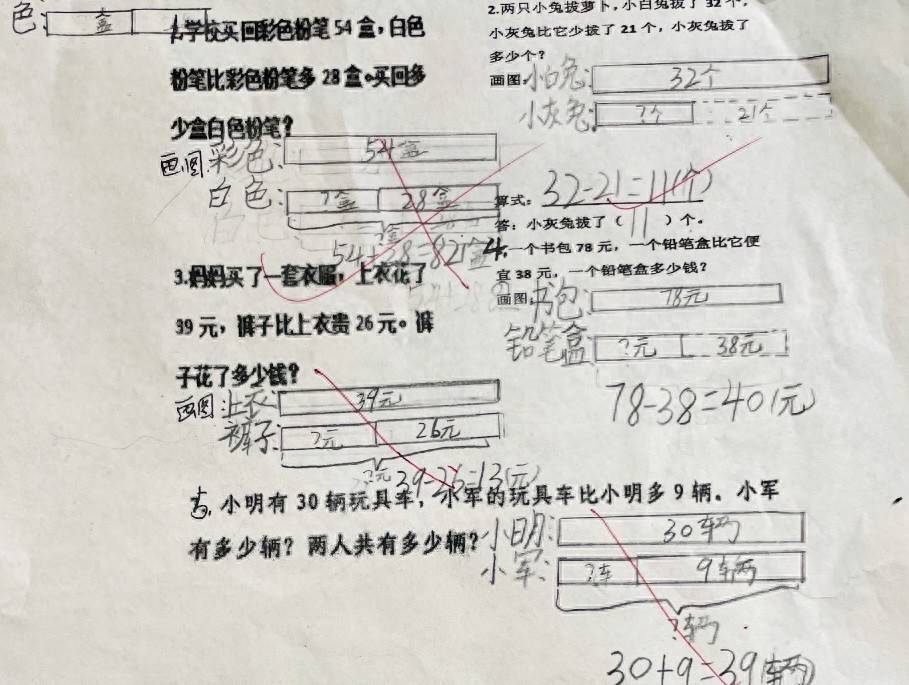 色:
盒
1.学校买回彩色粉笔54盒,白色
粉笔比彩色粉笔多28盒。买回多
少盒白色粉笔?
画图 彩色: 54盒
白色: ?盒 28盒
?盒
54+38=82(盒)
2.两只小兔拔萝卜,小白兔拔了32个,
小灰兔比它少拔了21个,小灰兔拔了
多少个?
画图。小白兔: 32个
小灰兔: ?个 21个
算式: 32-21=11(个)
答:小灰兔拔了( 11 )个。
3.妈妈买了一套衣服,上衣花了
39元,裤子比上衣贵26元。裤
子花了多少钱?
画图:上衣: 39元
裤子: ?元 26元
?元
39-26=13(元)
4,一个书包78元,一个铅笔盒比它便
宜38元,一个铅笔盒多少钱?
画图:书包: 78元
铅笔盒 ?元 38元
78-38=40(元)
5,小明有30辆玩具车,小军的玩具车比小明多9辆。小军
有多少辆?两人共有多少辆?
小明: 30辆
小军: ?车 9车辆
?辆
30+9=39(辆)